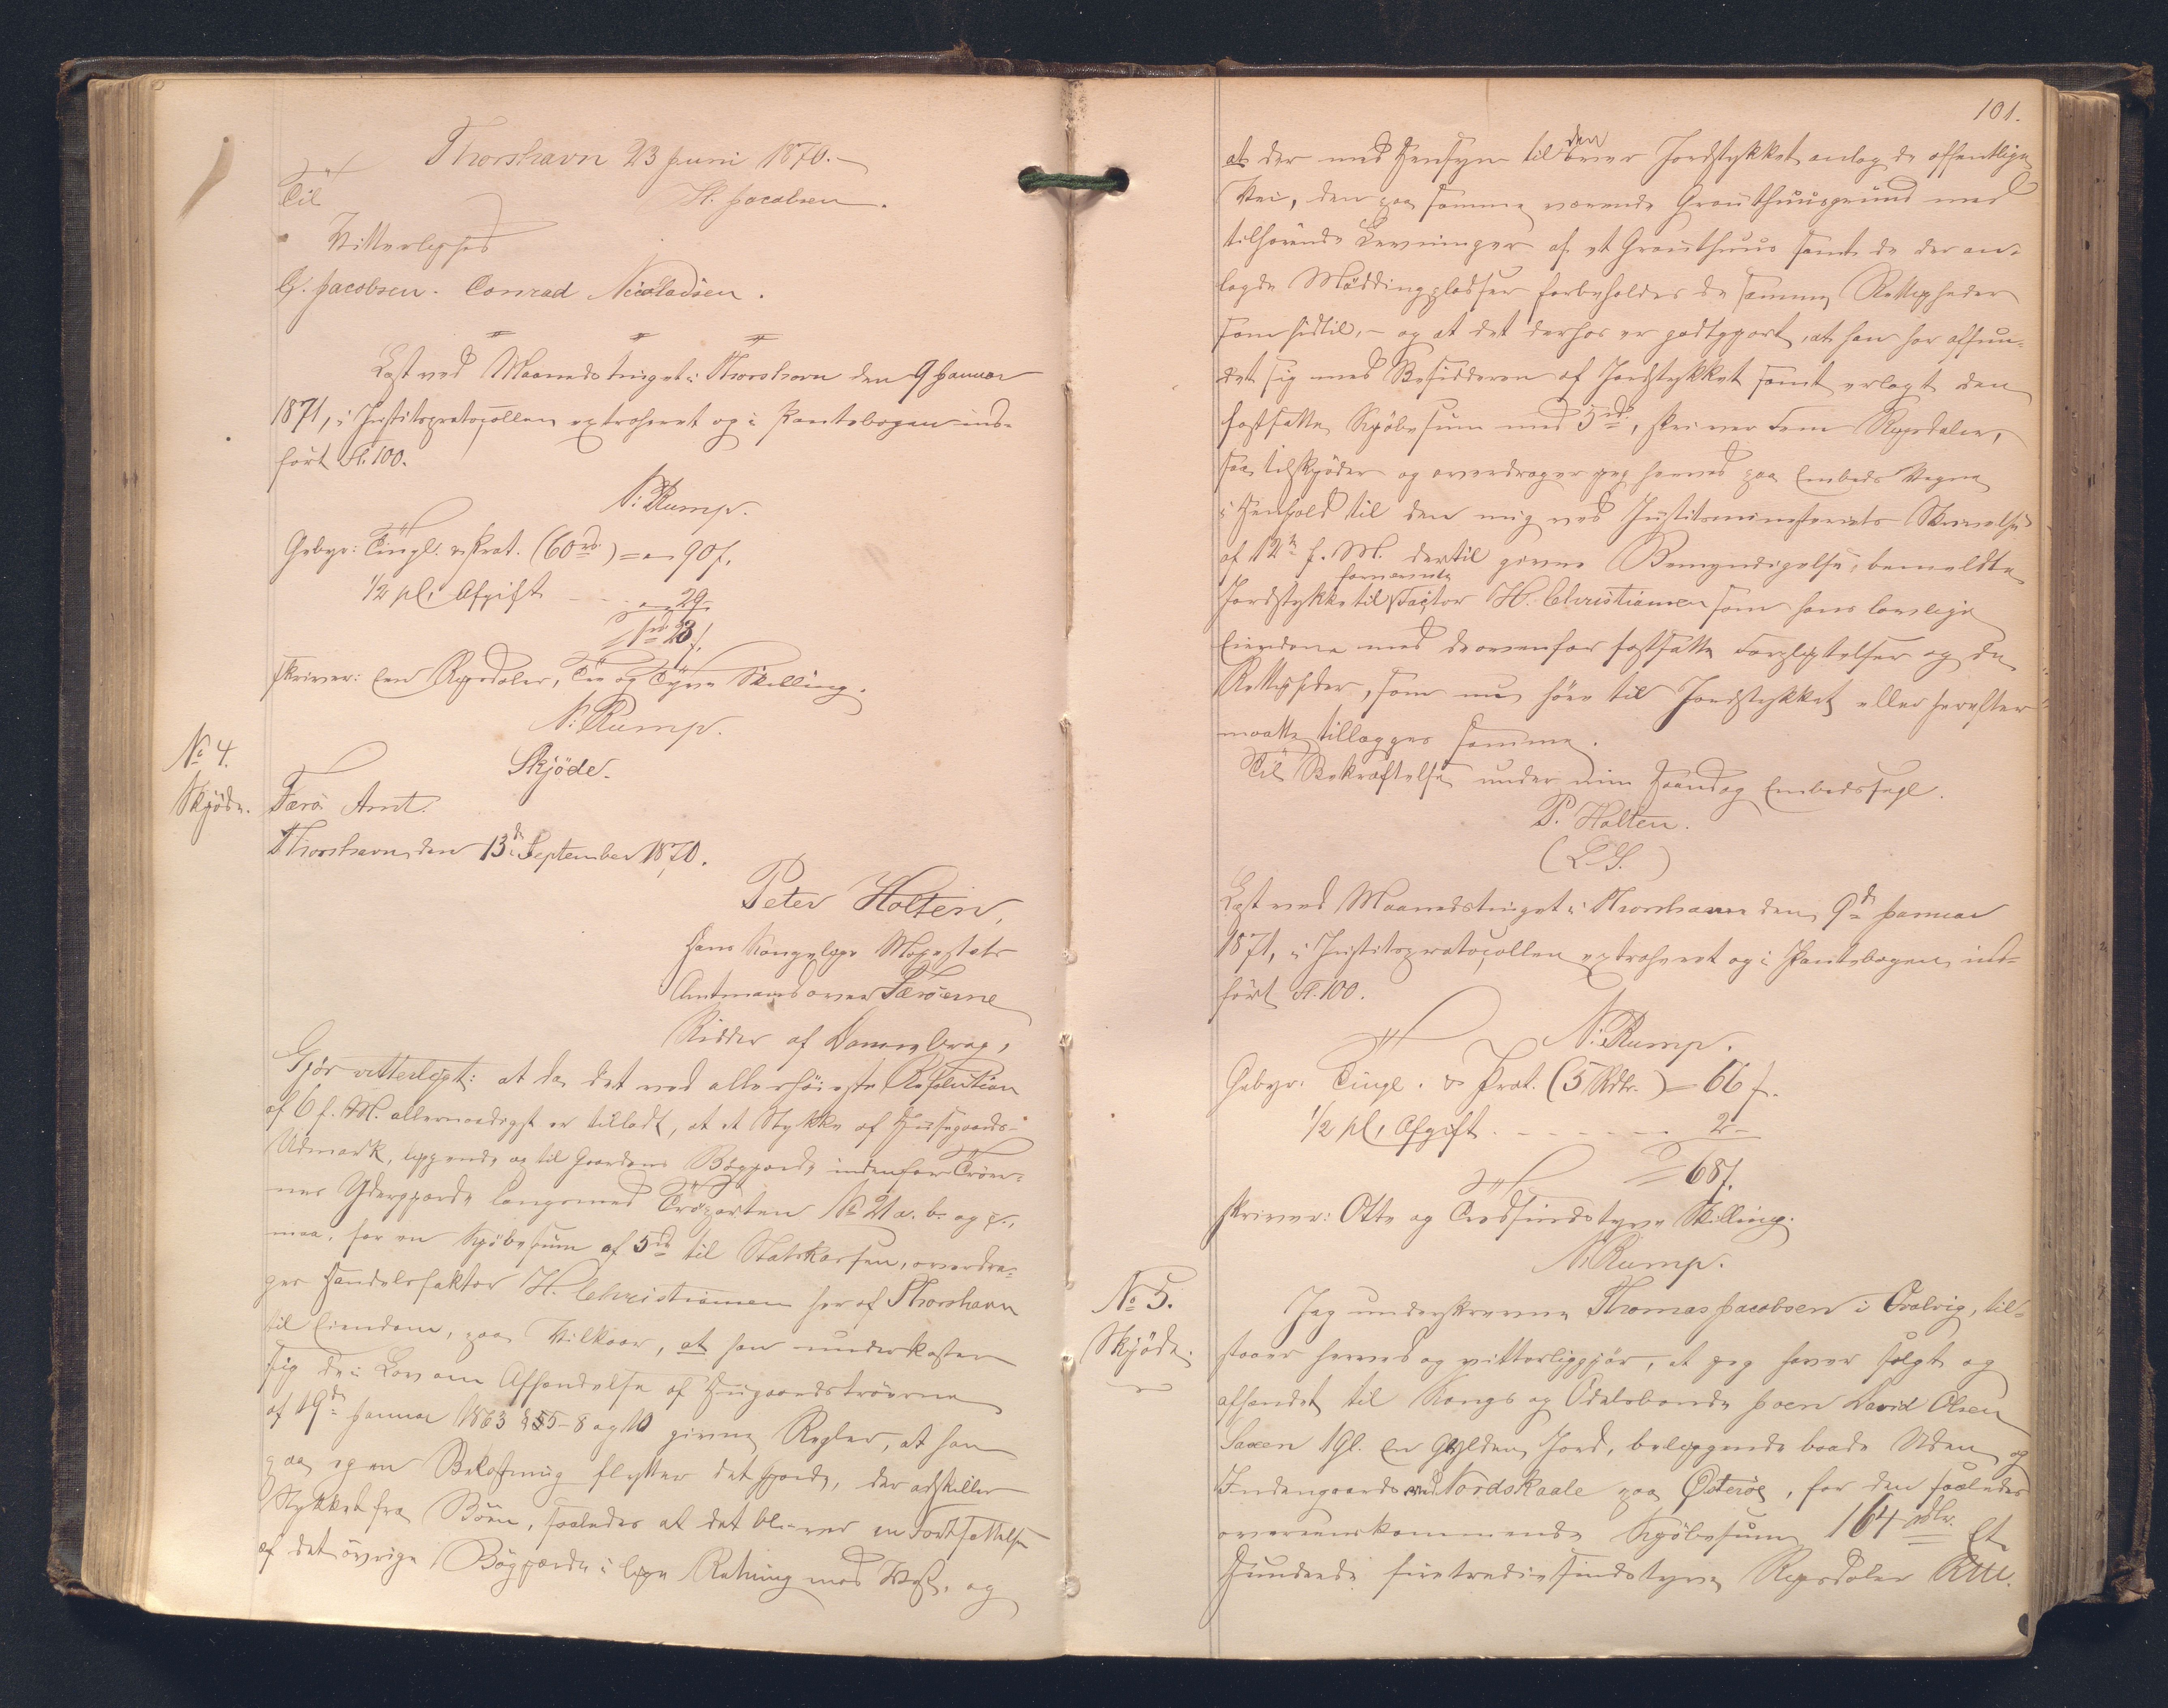 Thorshavn 23 Juni 1870.-
Til
H. Jacobsen.
Vitterlighed
G. Jacobsen. Conrad Nicolaisen.
Læst ved Maanedstinget i Thorshavn den 9 Januar
1871, i Justitsprotocollen extraheret og i Pantebogen ind-
ført Fl. 100.
N: Rump.
Gebyr: Tingl. & Prot. (60 rd) = " 90 ſ.
1/2 pCt Afgift - - - " 29
1 rd 23 ſ.
skriver: Een Rigsdaler, Tre og Tyve Skilling.
N: Rump.
No 4.
Skjöde.
Skjöde.
Færö Amt.
Thorshavn, den 13de September 1870.
Peter Holten,
Hans Kongelige Majestæts
Amtmand over Færöerne
Ridder af Dannebrog,
Gjör vitterligt: at da det ved allerhöieste Resolution
af 6 f. M. allernaadigst er tilladt, at et Stykke af Husegaards-
Udmark, liggende op til Gaardens Böggjerde indenfor Tröer-
nes Ydergjærde langsmed Tröparten No 21 a. b. og c.,
maa, for en Kjöbesum af 5 rd til Statskassen, overdra-
ges Handelsfaktor H. Christiansen her af Thorshavn
til Eiendom, paa Vilkaar, at han underkaster
sig de i Lov om Afhændelse af Husgaardströerne
af 19de Januar 1863 §§ 5-8 og 10 givne Regler, at han
paa egen Bekostning flytter det Gjerde, der adskiller
Stykket fra Böen, saaledes at det bliver en Fortsættelse
af det övrige Böggjærde i lige Retning mod Vest, og
101.
at der med Hensyn til den over Jordstykket anlagde offentlige
Vei, den paa samme værende Grouthuusgrund med
tilhörende Levninger af et Grouthuus samt de der an-
lagde Möddingpladser forbeholdes de samme Rettigheder
som hidtil, - og at det derhos er godtgjort, at han har affun-
det sig med Besidderen af Jordstykket samt erlagt den
fastsatte Kjöbesum med 5 rd, skriver Fem Rigsdaler,
saa tilskjöder og overdrager jeg herved paa Embeds Vegne
i Henhold til den mig ved Justitsministeriets Skrivelse
af 12te f. M. dertil givne Bemyndigelse, bemeldte
Jordstykke til fornævnte Factor H. Christiansen som hans lovlige
Eiendom med de ovenfor fastsatte Forpligtelser og de
Rettigheder, som nu höre til Jordstykket eller herefter
maatte tillægges samme.
Til Bekræftelse under min Haand og Embedssegl.
P. Holten.
(L.S.)
Læst ved Maanedstinget i Thorshavn den 9de Januar
1871, i Justitsprotocollen extraheret og i Pantebogen ind-
ført Fl. 100.
N: Rump.
Gebyr: Tingl. & Prot. (5 Rdlr.) = 66 ſ.
1/2 pCt Afgift. - - - - - 2 -
= 68 ſ.
skriver: Otte og Tredsindstyve Skilling.
N: Rump.
No 5.
Skjöde.
Jeg underskrevne Thomas Jacobsen i Qvalvig, til-
staaer herved og vitterliggjör, at jeg haver solgt og
afhændet til Kongs og Odelsbonde Joen David Olsen
Saxen 1 Gl. En Gylden Jord, beliggende baade Uden og
Indengaards ved Nordskaale paa Österöe, for den saaledes
overeenskommende Kjöbesum 164 Rdlr. Et
Hundrede firetredsindstyve Rigsdaler R.M.